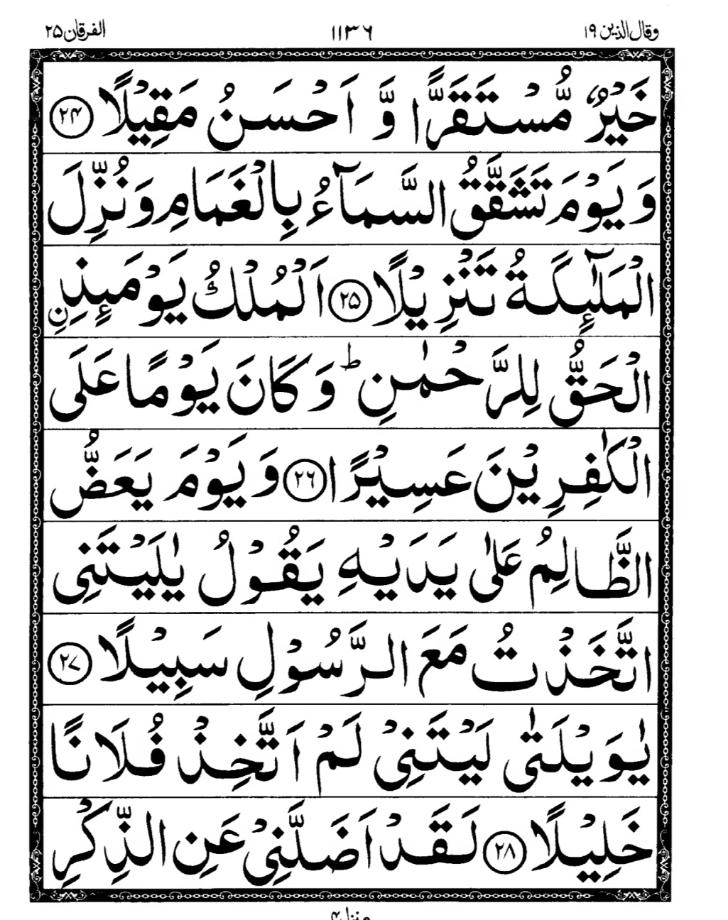 وقال الذین ۱۹ ۱۱۳۶ الفرقان ۲۵
خَیْرٌ مُّسْتَقَرًّا وَّ اَحْسَنُ مَقِیْلًا ﴿۲۴﴾
وَ یَوْمَ تَشَقَّقُ السَّمَآءُ بِالْغَمَامِ وَ نُزِّلَ
الْمَلٰٓئِكَةُ تَنْزِیْلًا ﴿۲۵﴾ اَلْمُلْكُ یَوْمَىِٕذِنِ
الْحَقُّ لِلرَّحْمٰنِ ؕ وَ كَانَ یَوْمًا عَلَى
الْكٰفِرِیْنَ عَسِیْرًا ﴿۲۶﴾ وَ یَوْمَ یَعَضُّ
الظَّالِمُ عَلٰى یَدَیْهِ یَقُوْلُ یٰلَیْتَنِی
اتَّخَذْتُ مَعَ الرَّسُوْلِ سَبِیْلًا ﴿۲۷﴾
یٰوَیْلَتٰى لَیْتَنِیْ لَمْ اَتَّخِذْ فُلَانًا
خَلِیْلًا ﴿۲۸﴾ لَقَدْ اَضَلَّنِیْ عَنِ الذِّكْرِ
منزل ۴